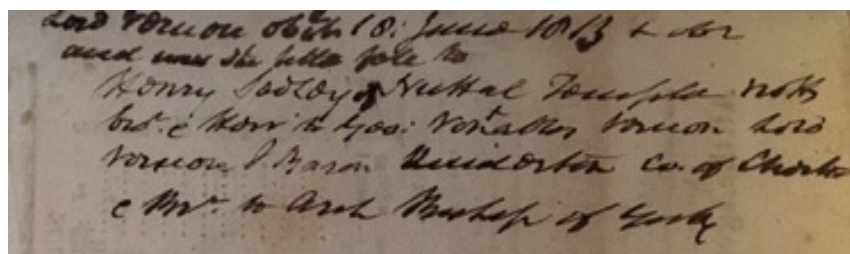 Lord Vernon obt 18: June 1813 &
and was the
Henry Sedley of Nuttal Temple Notts
bro. & Heir to Geo: Venables Vernon Lord
Vernon Baron Kinderton Co. of Chester
& Bror. to Arch Bishop of York